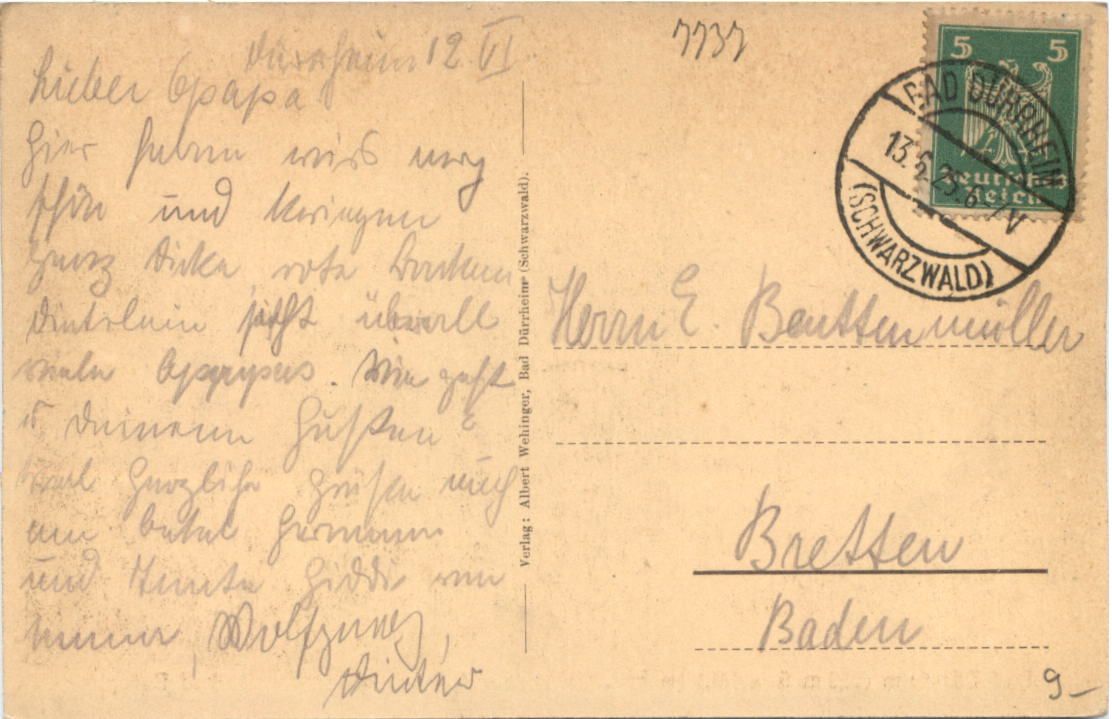 Dürrheim 12 VI
Lieber Opapa
hier haben wirs
schön und kriegen
ganz dicke rote Backen
Dieterlein sieht überall
viele Opapas. Wie geht
Deinem Husten?
herzliche Grüße auch
an Onkel Hermann
und Tante Hiddi von
Wolfgang,
Dieter
7737
5 5
Deutsches
Reich
BAD DÜRRHEIM
13.6.25.6-7V
(SCHWARZWALD)
Verlag: Albert Wehinger, Bad Dürrheim (Schwarzwald).
Herrn E. Beuttenmüller
Bretten
Baden
9-